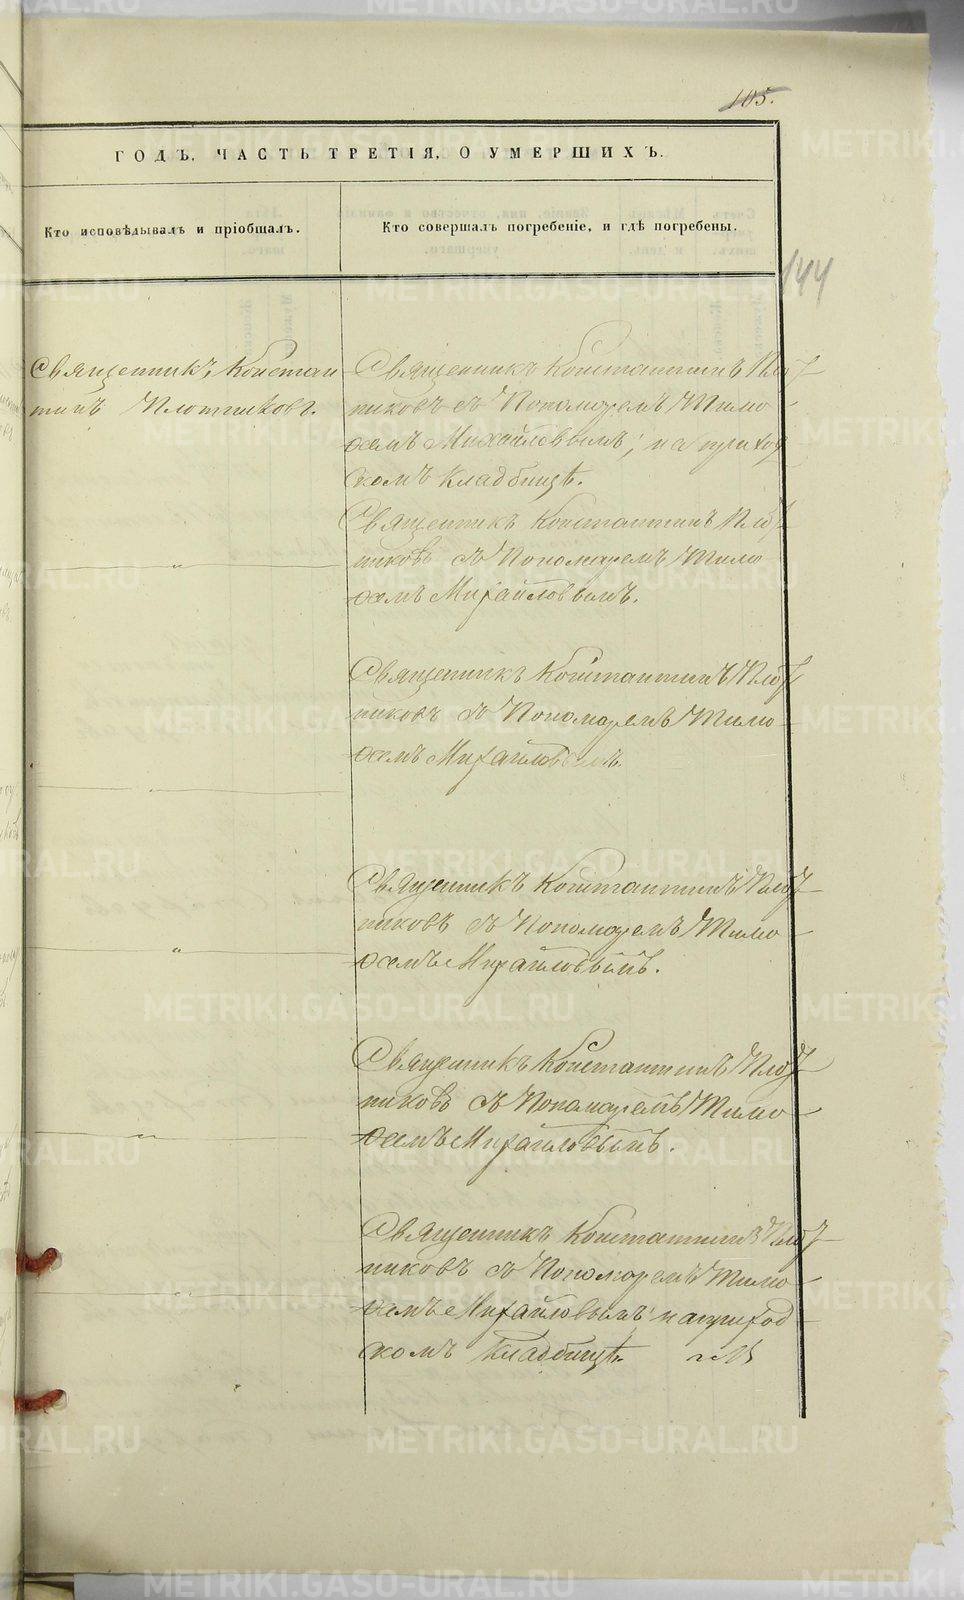 105.
ГОДЪ. ЧАСТЬ ТРЕТІЯ, О УМЕРШИХЪ.
Кто исповѣдывалъ и пріобщалъ.
Кто совершалъ погребеніе, и гдѣ погребены.
144
Священникъ, Констан
тинъ Плотниковъ.
Священникъ Константинъ Плот
никовъ съ Пономаремъ Тимо
ѳеемъ Михайловымъ; на приход
скомъ кладбищѣ.
Священникъ Константинъ Плот
никовъ съ Пономаремъ Тимо
ѳеемъ Михайловымъ.
Священникъ Константинъ Плот
никовъ съ Пономаремъ Тимо
ѳеемъ Михайловымъ.
Священникъ Константинъ Плот
никовъ съ Пономаремъ Тимо
ѳеемъ Михайловымъ.
Священникъ Константинъ Плот
никовъ съ Пономаремъ Тимо
ѳеемъ Михайловымъ.
Священникъ Константинъ Плот
никовъ съ Пономаремъ Тимо
ѳеемъ Михайловымъ; на приход
скомъ кладбищѣ.
METRIKI.GASO-URAL.RU